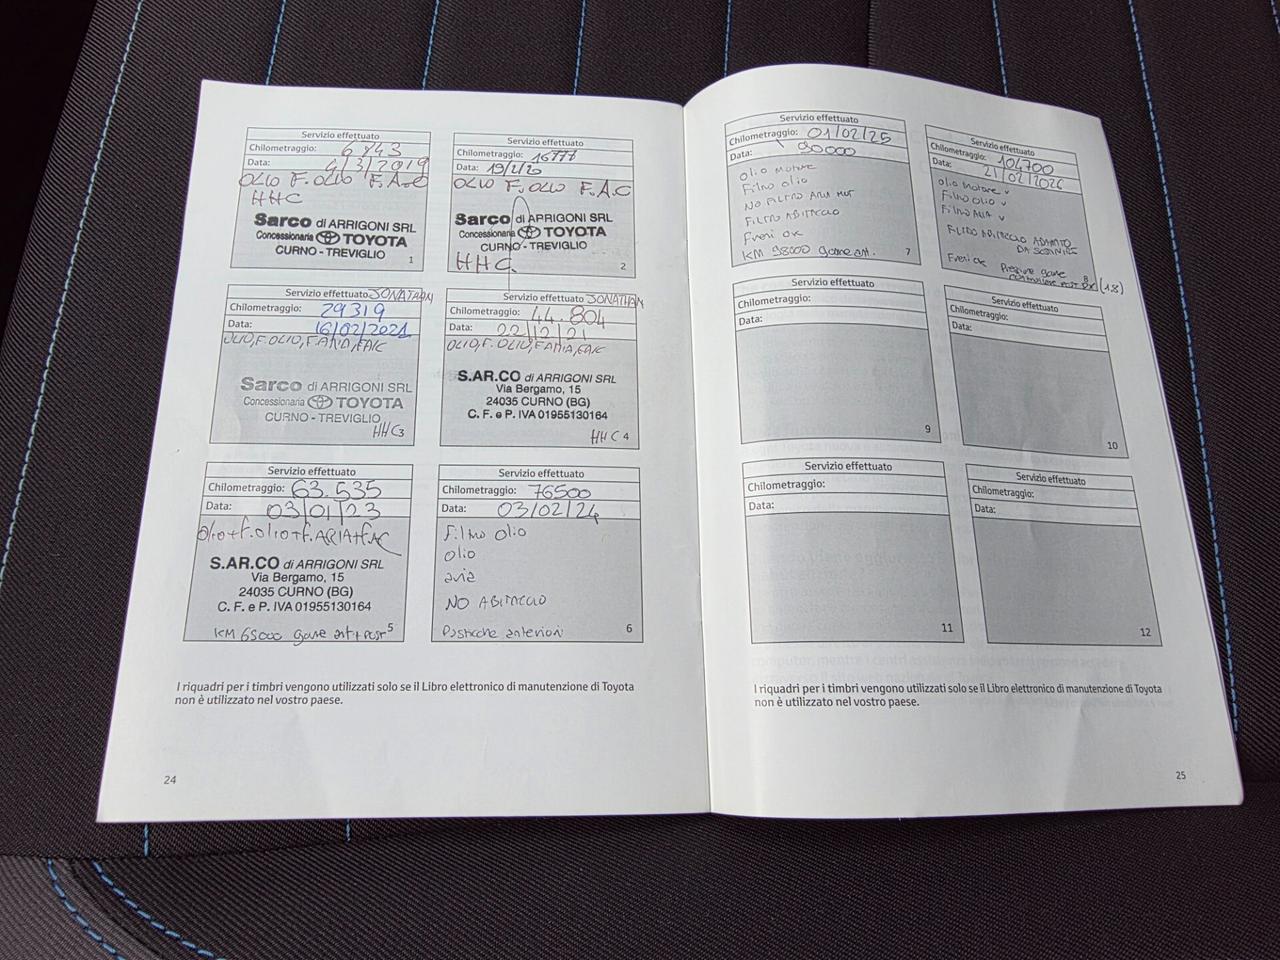 Servizio effettuato
Chilometraggio: 6743
Data: 4/3/2019
OLIO F.OLIO F.A.C
HHC
Sarco di ARRIGONI SRL
Concessionaria TOYOTA
CURNO - TREVIGLIO
1
Servizio effettuato
Chilometraggio: 16777
Data: 19/2/20
OLIO F. OLIO F.A.C
Sarco di ARRIGONI SRL
Concessionaria TOYOTA
CURNO - TREVIGLIO
HHC.
2
Servizio effettuato JONATHAN
Chilometraggio: 29319
Data: 16/02/2021
OLIO, F.OLIO, F.ARIA, F.A/C
Sarco di ARRIGONI SRL
Concessionaria TOYOTA
CURNO - TREVIGLIO
HHC 3
Servizio effettuato JONATHAN
Chilometraggio: 44.804
Data: 22/12/21
OLIO, F.OLIO, F.ARIA, F.A/C
S.AR.CO di ARRIGONI SRL
Via Bergamo, 15
24035 CURNO (BG)
C. F. e P. IVA 01955130164
HHC 4
Servizio effettuato
Chilometraggio: 63.535
Data: 03/01/23
Olio+F.olio+F.ARIA+F.AC
S.AR.CO di ARRIGONI SRL
Via Bergamo, 15
24035 CURNO (BG)
C. F. e P. IVA 01955130164
KM 65000 gome ant+post 5
Servizio effettuato
Chilometraggio: 76500
Data: 03/02/24
Filtro olio
olio
aria
NO ABITACOLO
Pasticche anteriori 6
I riquadri per i timbri vengono utilizzati solo se il Libro elettronico di manutenzione di Toyota
non è utilizzato nel vostro paese.
24
Servizio effettuato
Chilometraggio: 01/02/25
Data: 90000
olio motore
Filtro olio
NO FILTRO ARIA MOT
FILTRO ABITACOLO
Freni ok
KM 98000 gome ant. 7
Servizio effettuato
Chilometraggio: 104700
Data: 21/02/2026
olio motore v
Filtro olio v
Filtro ARIA v
FILTRO ABITACOLO
DA
Freni ok Pressione gome
8
post DX (1.8)
Servizio effettuato
Chilometraggio:
Data:
9
Servizio effettuato
Chilometraggio:
Data:
10
Servizio effettuato
Chilometraggio:
Data:
11
Servizio effettuato
Chilometraggio:
Data:
12
I riquadri per i timbri vengono utilizzati solo se il Libro elettronico di manutenzione di Toyota
non è utilizzato nel vostro paese.
25